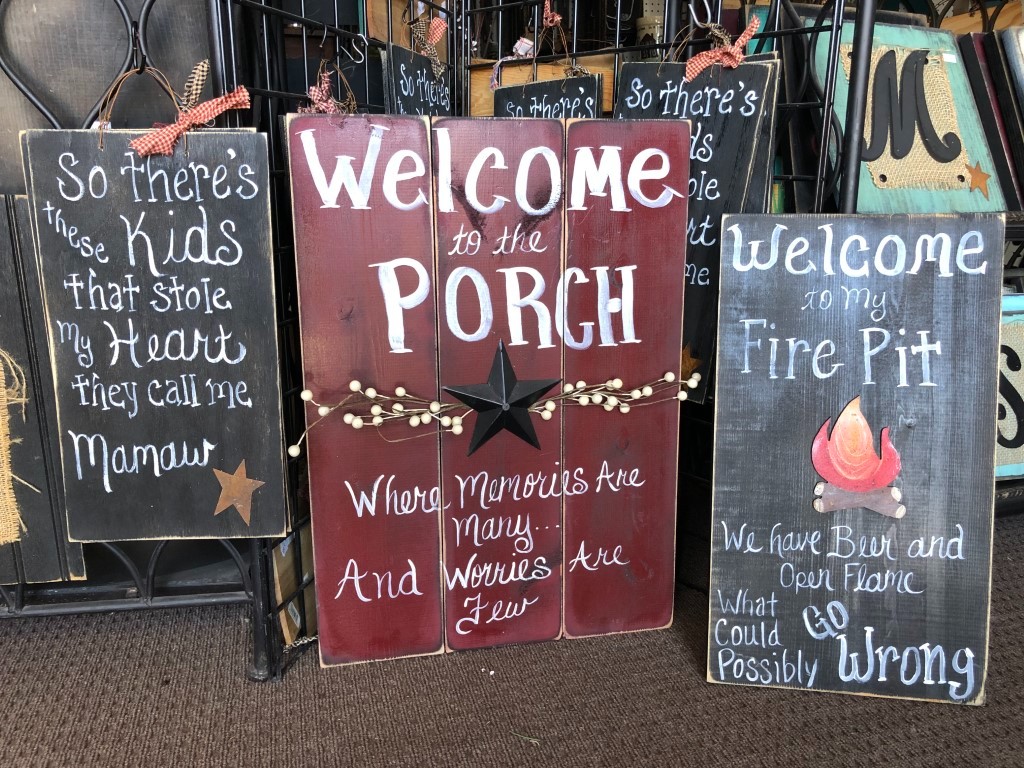 So there's
these Kids
that stole
My Heart
they call me
Mamaw
Welcome
to the
PORCH
Where Memories Are
Many...
And Worries Are
Few
Welcome
to My
Fire Pit
We have Beer and
Open Flame
What
Could
Possibly
GO
Wrong
So there's
So there's
So there's
M